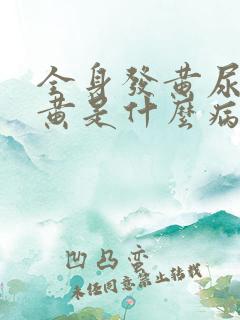 全身發黃尿
黃是什麼病
凹凸蛮
未经同意禁止转载